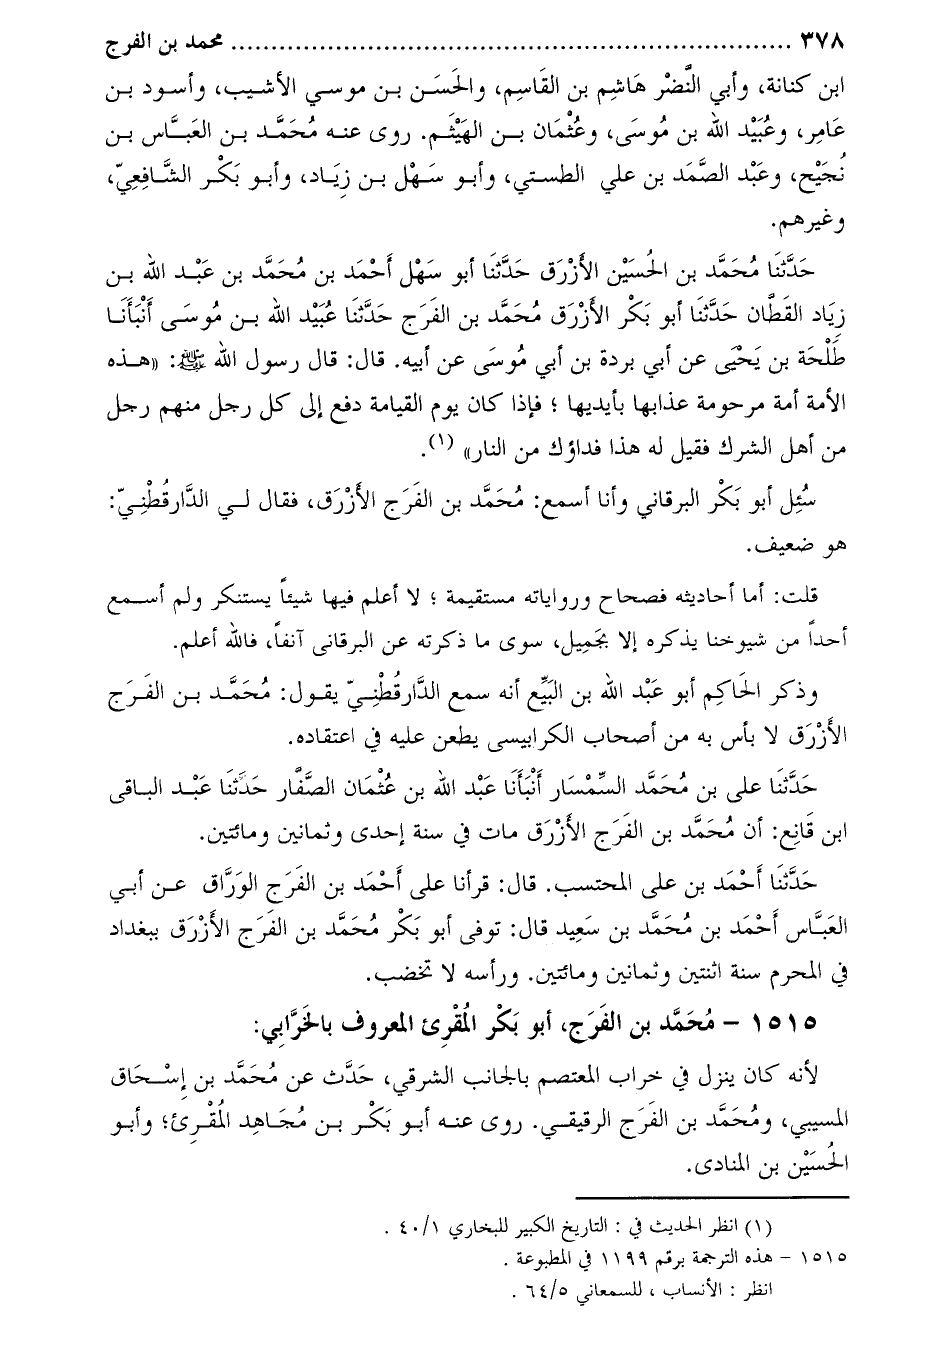 ٣٧٨ ........................................................................ محمد بن الفرج
ابن كنانة، وأبي النَّضْر هَاشِم بن القَاسِم، والحَسَن بن موسي الأشيب، وأسود بن
عَامِر، وعُبَيْد الله بن مُوسَى، وعُثْمَان بن الهَيْثَم. روى عنه مُحَمَّد بن العَبَّاس بن
نُجَيْح، وعَبْد الصَّمَد بن علي الطستي، وأبو سَهْل بن زِيَاد، وأبو بَكْر الشَّافِعِيّ،
وغيرهم.
حَدَّثَنَا مُحَمَّد بن الحُسَيْن الأَزْرَق حَدَّثَنَا أبو سَهْل أَحْمَد بن مُحَمَّد بن عَبْد الله بن
زِيَاد القَطَّان حَدَّثَنَا أبو بَكْر الأَزْرَق مُحَمَّد بن الفَرَج حَدَّثَنَا عُبَيْد الله بن مُوسَى أَنْبَأَنَا
طَلْحَة بن يَحْيَى عن أبي بردة بن أبي مُوسَى عن أبيه. قال: قال رسول الله ﷺ: «هذه
الأمة أمة مرحومة عذابها بأيديها ؛ فإذا كان يوم القيامة دفع إلى كل رجل منهم رجل
من أهل الشرك فقيل له هذا فداؤك من النار» (١).
سُئِل أبو بَكْر البرقاني وأنا أسمع: مُحَمَّد بن الفَرَج الأَزْرَق، فقال لي الدَّارقُطْنِيّ:
هو ضعيف.
قلت: أما أحاديثه فصحاح ورواياته مستقيمة ؛ لا أعلم فيها شيئاً يستنكر ولم أسمع
أحداً من شيوخنا يذكره إلا بجَمِيل، سوى ما ذكرته عن البرقانى آنفاً، فالله أعلم.
وذكر الحَاكِم أبو عَبْد الله بن البَيِّع أنه سمع الدَّارقُطْنِيّ يقول: مُحَمَّد بن الفَرَج
الأَزْرَق لا بأس به من أصحاب الكرابيسى يطعن عليه في اعتقاده.
حَدَّثَنَا على بن مُحَمَّد السِّمْسَار أَنْبَأَنَا عَبْد الله بن عُثْمَان الصَّفَّار حَدَّثَنَا عَبْد الباقى
ابن قَانِع: أن مُحَمَّد بن الفَرَج الأَزْرَق مات في سنة إحدى وثمانين ومائتين.
حَدَّثَنَا أَحْمَد بن على المحتسب. قال: قرأنا على أَحْمَد بن الفَرَج الوَرَّاق عن أبي
العَبَّاس أَحْمَد بن مُحَمَّد بن سَعِيد قال: توفى أبو بَكْر مُحَمَّد بن الفَرَج الأَزْرَق ببغداد
في المحرم سنة اثنتين وثمانين ومائتين. ورأسه لا تخضب.
١٥١٥ - مُحَمَّد بن الفَرَج، أبو بَكْر المُقْرِئ المعروف بالخَرَّابِي:
لأنه كان ينزل في خراب المعتصم بالجانب الشرقي، حَدَّث عن مُحَمَّد بن إِسْحَاق
المسيبي، ومُحَمَّد بن الفَرَج الرقيقي. روى عنه أبو بَكْر بن مُجَاهِد المُقْرِئ؛ وأبو
الحُسَيْن بن المنادى.
(١) انظر الحديث في : التاريخ الكبير للبخاري ٤٠/١ .
١٥١٥ - هذه الترجمة برقم ١١٩٩ في المطبوعة .
انظر : الأنساب ، للسمعاني ٦٤/٥ .